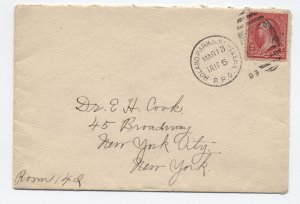 MAR 13
R.P.O.
83
Dr. E H. Cook
45 Broadway
New York City
New York.
Room 142